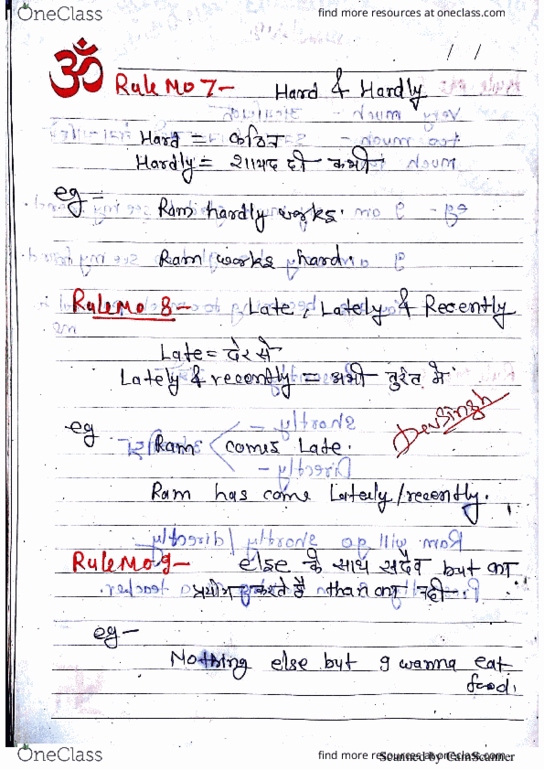 OneClass
find more resources at oneclass.com
ॐ
/ /
Rule No 7- Hard & Hardly
Hard = कठिन
Hardly = शायद ही कभी
eg - Ram hardly works.
Ram works hard.
Rule No 8- Late, Lately & Recently
Late = देर से
Lately & recently = अभी तुरंत में
eg Ram comes Late.
DevSingh
Ram has come Lately/recently.
Rule No 9- else के साथ सदैव but का
प्रयोग करते है than का नही
eg- Nothing else but I wanna eat
food.
OneClass
find more resources at oneclass.com
Scanned by CamScanner